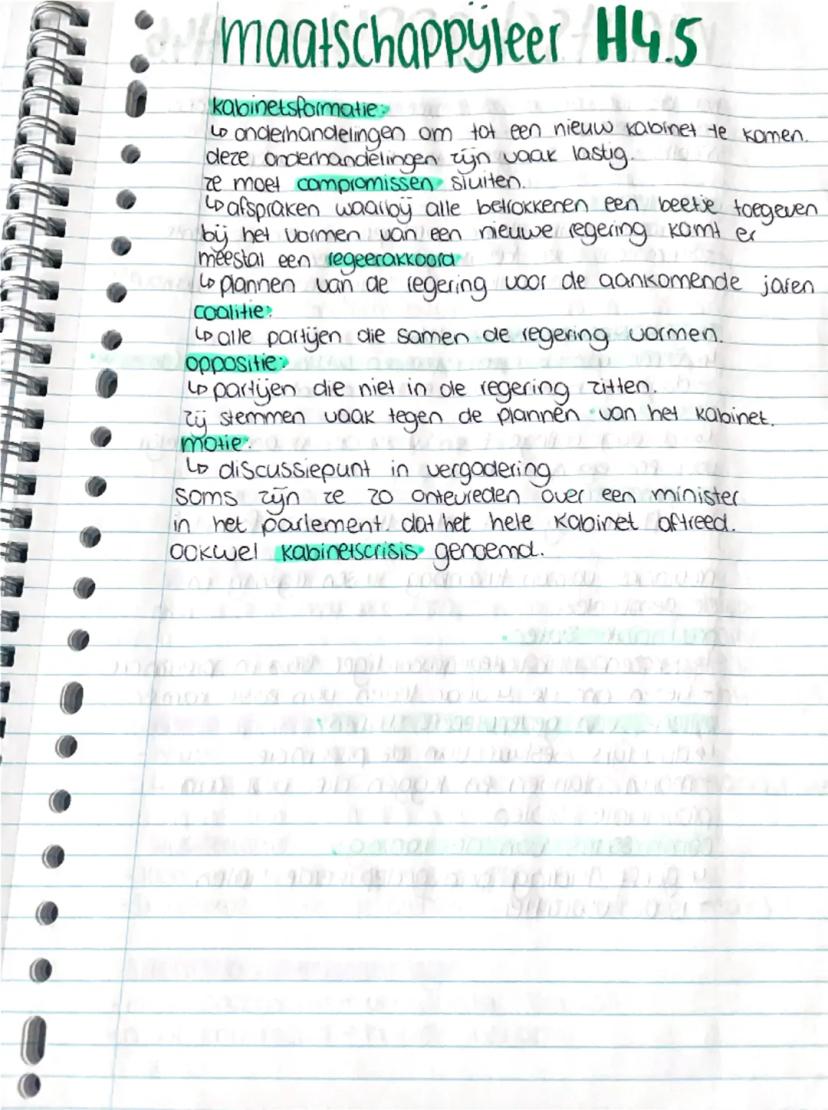 maatschappijleer H4.5
kabinetsformatie:
↳ onderhandelingen om tot een nieuw kabinet te komen.
deze onderhandelingen zijn vaak lastig.
ze moet compromissen sluiten.
↳ afspraken waarbij alle betrokkenen een beetje toegeven
bij het vormen van een nieuwe regering komt er
meestal een regeerakkoord
↳ plannen van de regering voor de aankomende jaren
coalitie:
↳ alle partijen die samen de regering vormen.
oppositie:
↳ partijen die niet in de regering zitten.
zij stemmen vaak tegen de plannen van het kabinet.
motie:
↳ discussiepunt in vergadering
Soms zijn ze zo ontevreden over een minister
in het parlement dat het hele kabinet aftreed.
ookwel kabinetscrisis genoemd.